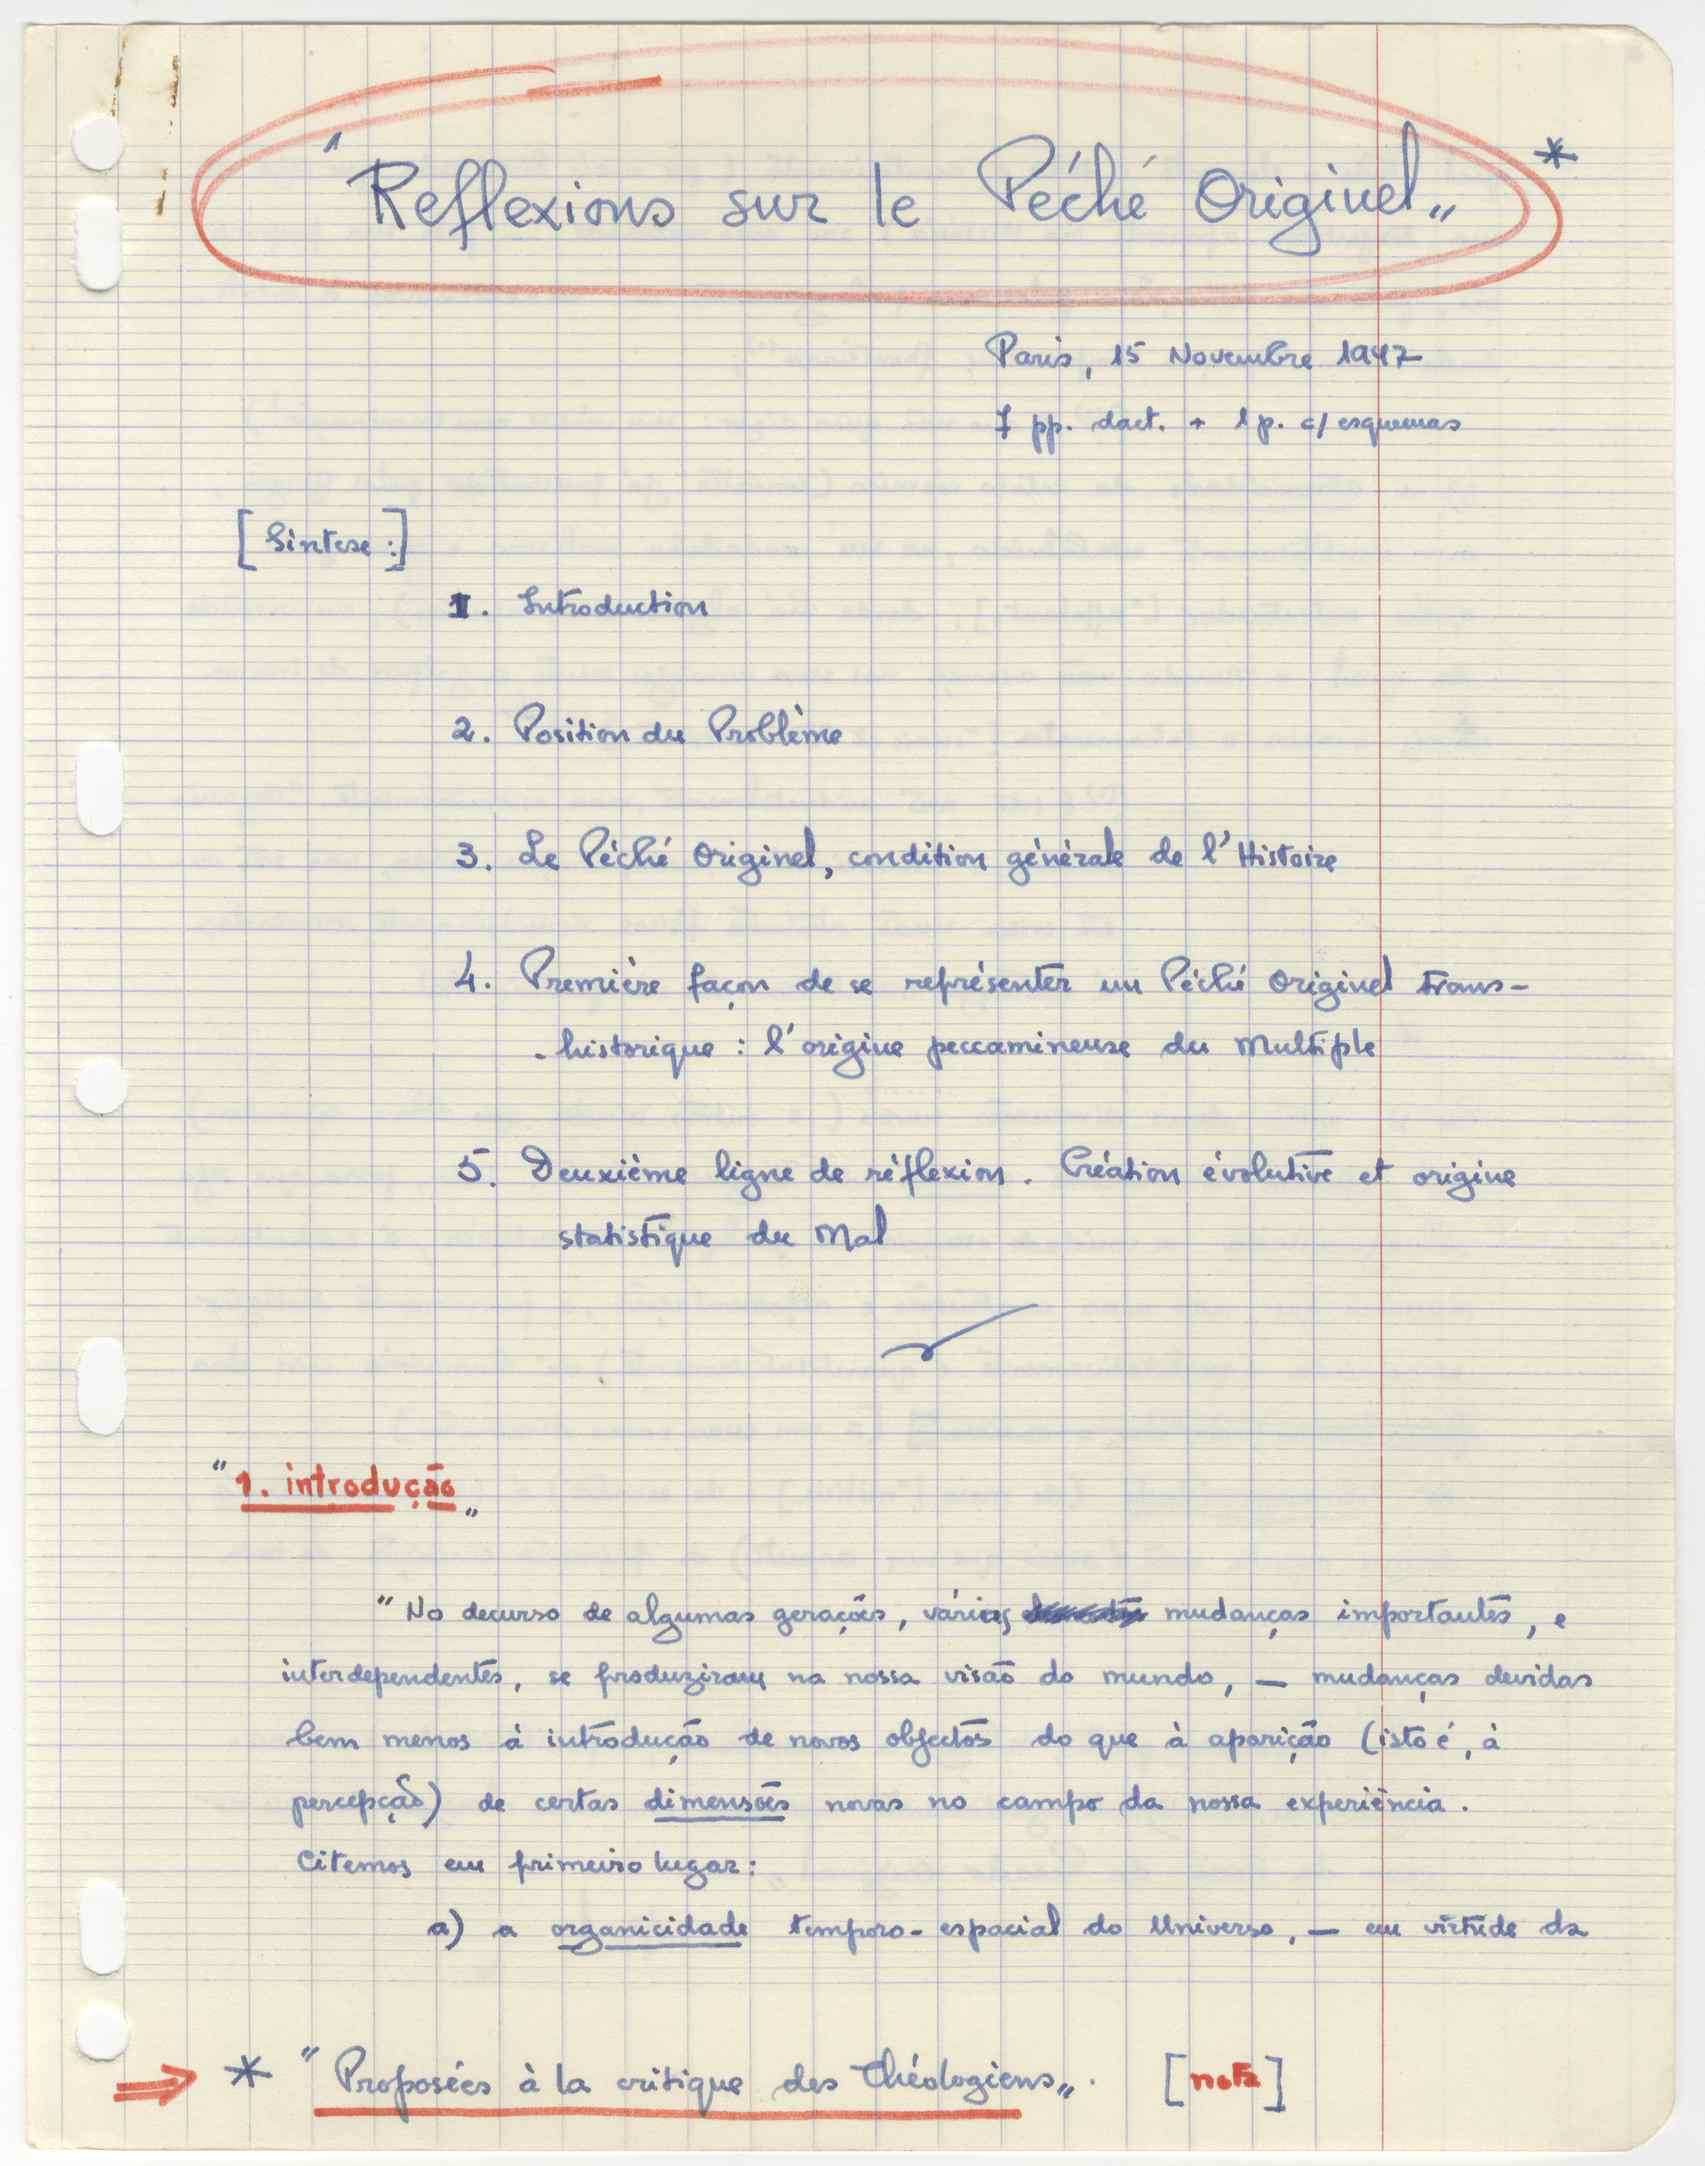 "Reflexions sur le Péché Originel„ *
Paris, 15 Novembre 1947
7 pp. dact. + 1 p. c/ esquemas
[Sintese:]
1. Introduction
2. Position du Problème
3. Le Péché Originel, condition générale de l'Histoire
4. Première façon de se représenter un Péché Originel trans-
-historique : l'origine peccamineuse du Multiple
5. Deuxième ligne de réflexion. Création évolutive et origine
statistique du Mal
"1. introdução„
"No decurso de algumas gerações, várias mudanças importantes, e
interdependentes, se produziram na nossa visão do mundo, — mudanças devidas
bem menos à introdução de novos objectos do que à aparição (isto é, à
percepção) de certas dimensões novas no campo da nossa experiência.
Citemos em primeiro lugar:
a) a organicidade temporo-espacial do Universo, — em virtude da
* "Proposées à la critique des Théologiens„. [nota]